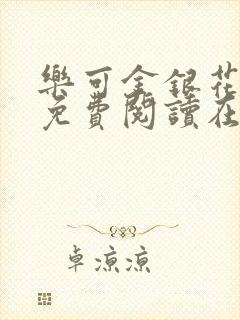 樂可金銀花
免費閱讀在
卓涼涼